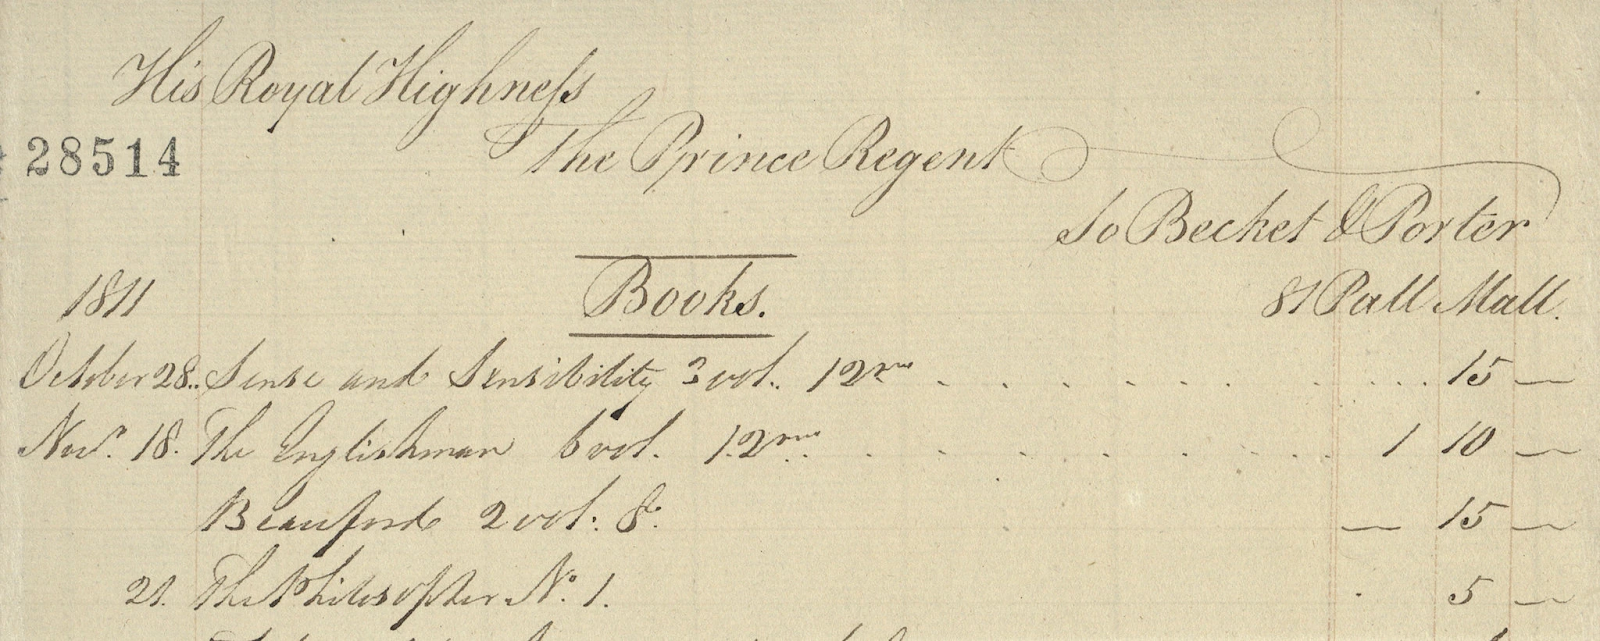 His Royal Highneſs
28514
The Prince Regent
To Becket & Porter
81 Pall Mall.
1811
Books.
October 28.. Sense and Sensibility 3 vol. 12mo . . . . . . . . . . . 15 —
Novr. 18. The Englishman 6 vol. 12mo. . . . . . . . . . . 1 10 —
Beauford 2 vol. 8o. — 15 —
21. The Philosopher No. 1. . 5 —